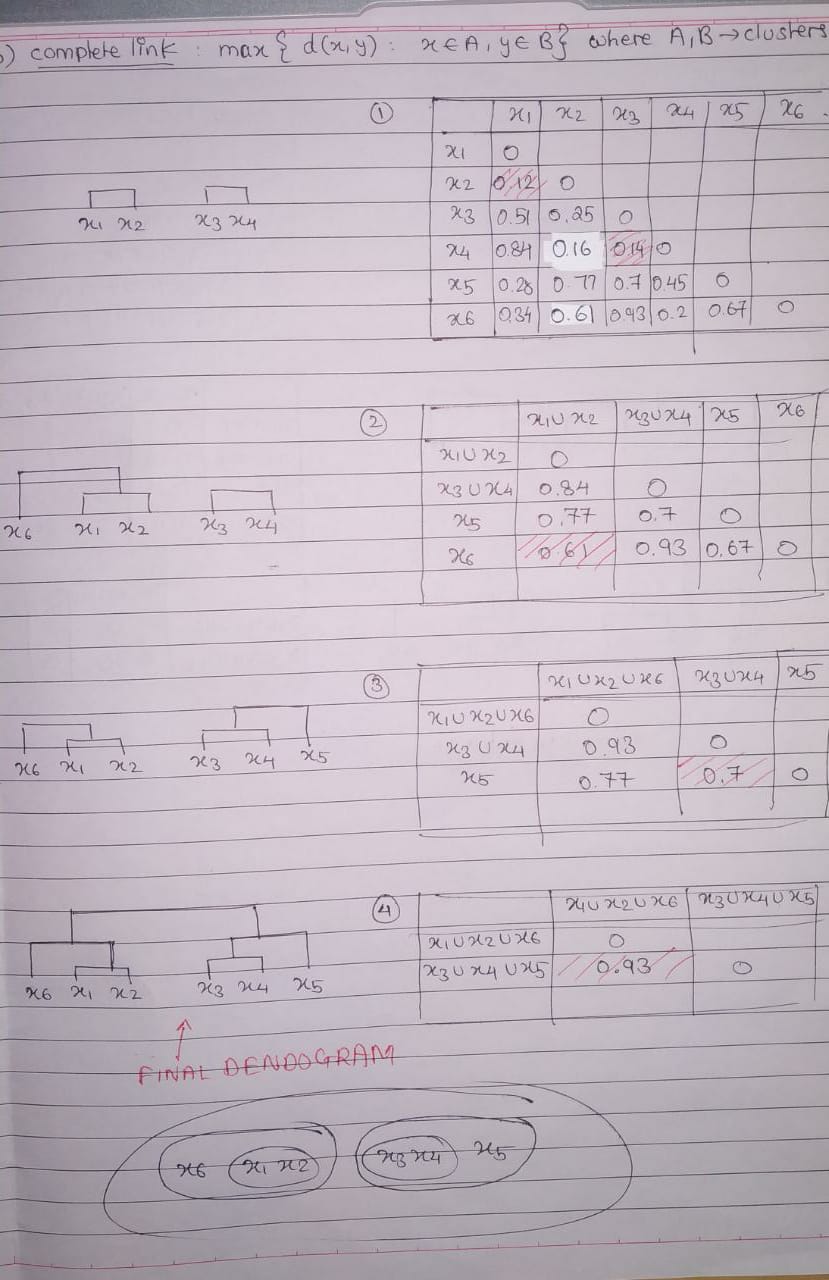 ) complete link : max { d(x,y) : x ∈ A, y ∈ B} where A,B → clusters
① x1 x2 x3 x4 x5 x6
x1 0
x2 0.12 0
x3 0.51 0.25 0
x4 0.84 0.16 0.14 0
x5 0.28 0.77 0.7 0.45 0
x6 0.34 0.61 0.93 0.2 0.67 0
x1 x2 x3 x4
② x1 ∪ x2 x3 ∪ x4 x5 x6
x1 ∪ x2 0
x3 ∪ x4 0.84 0
x5 0.77 0.7 0
x6 0.61 0.93 0.67 0
x6 x1 x2 x3 x4
③ x1 ∪ x2 ∪ x6 x3 ∪ x4 x5
x1 ∪ x2 ∪ x6 0
x3 ∪ x4 0.93 0
x5 0.77 0.7 0
x6 x1 x2 x3 x4 x5
④ x1 ∪ x2 ∪ x6 x3 ∪ x4 ∪ x5
x1 ∪ x2 ∪ x6 0
x3 ∪ x4 ∪ x5 0.93 0
x6 x1 x2 x3 x4 x5
FINAL DENDOGRAM
x6 x1 x2 x3 x4 x5